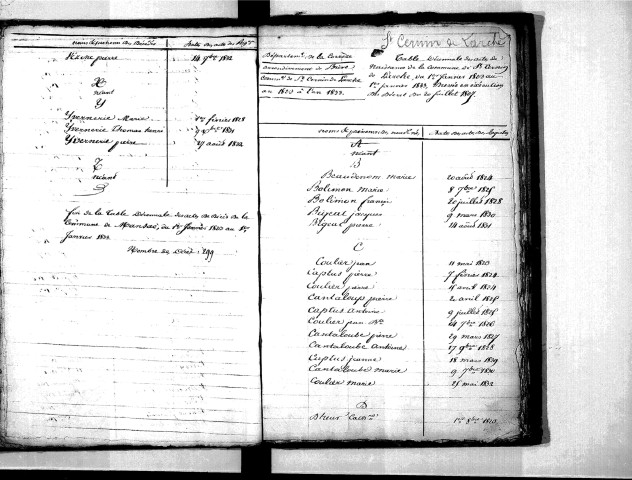 noms et prénoms des Décédés Date des actes des Reg.
pierre 14 9bre 1832
X
néant
Y
Yvernerie Marie 1er février 1828
Yvernerie Thomas henri 1831
Yverneris pierre 27 août 1832
Z
néant
fin de la Table Décennale des actes de Décès de la
Commune de Mansac, du 1er Janvier 1823 au 1er
Janvier 1833.
Nombre des Décès: 299
St Cernin de Larche
Département de la Corrèze
arrondissement de Brive
Commune de St Cernin de Larche
an 1823 à l'an 1833.
Table Décennale des actes de
Naissance de la Commune de St Cernin
de Larche, du 1er Janvier 1823 au
1er Janvier 1833, Dressée en exécution
du Décret du 20 Juillet 1807.
noms et prénoms des Date des actes des Registres
A
néant
B
Beaudenom marie 20 août 1824
Bolimon marie 8 7bre 1825
Bolimon françois 20 juillet 1828
jacques 9 mars 1830
pierre 24 août 1831
C
Coulier jean 11 mai 1823
Caplus pierre 7 février 1824
Coulier pierre 15 août 1824
Cantaloup pierre 2 avril 1825
Caplus Antoine 9 juillet 1825
Coulier jean Bte 24 7bre 1826
Cantaloube pierre 29 mars 1827
Cantaloube Antoine 17 9bre 1828
Caplus jeanne 18 mars 1829
Cantaloube marie 9 7bre 1830
Coulier marie 25 mai 1832
D
1er 8bre 1823